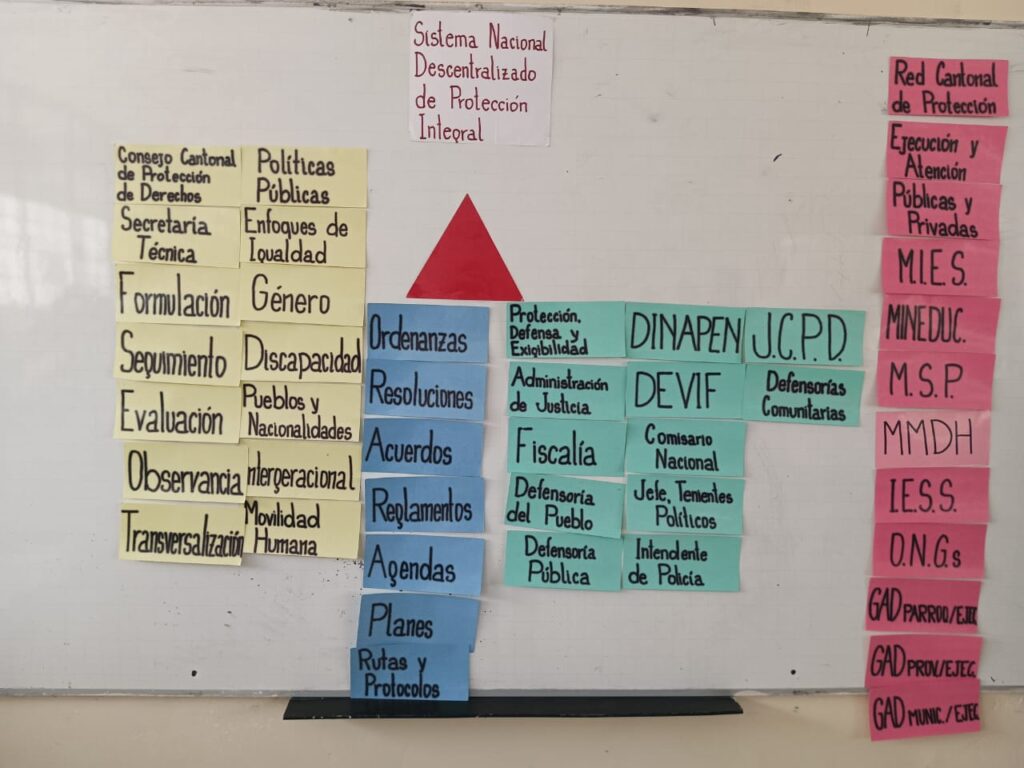 Sistema Nacional
Descentralizado
de Protección
Integral
Consejo Cantonal
de Protección
de Derechos
Secretaría
Técnica
Formulación
Seguimiento
Evaluación
Observancia
Transversalización
Políticas
Públicas
Enfoques de
Igualdad
Género
Discapacidad
Pueblos y
Nacionalidades
Intergeracional
Movilidad
Humana
Ordenanzas
Resoluciones
Acuerdos
Reglamentos
Agendas
Planes
Rutas y
Protocolos
Protección,
Defensa y
Exigibilidad
Administración
de Justicia
Fiscalía
Defensoría
del Pueblo
Defensoría
Pública
DINAPEN
DEVIF
Comisario
Nacional
Jefe, Tenientes
Políticos
Intendente
de Policía
J.C.P.D.
Defensorías
Comunitarias
Red Cantonal
de Protección
Ejecución y
Atención
Públicas y
Privadas
M.I.E.S.
MINEDUC.
M.S.P.
MMDH
I.E.S.S.
O.N.Gs
GAD PARROQ/EJEC
GAD PROV./EJEC.
GAD MUNIC./EJEC